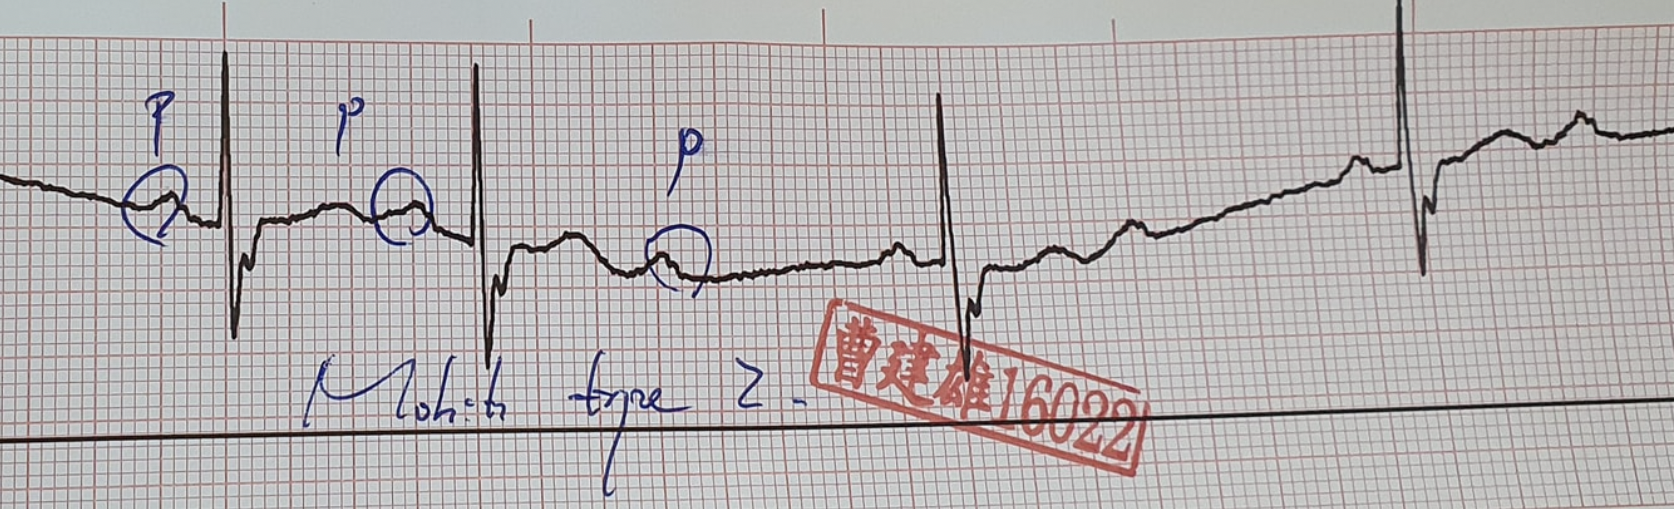 P P P
Mobitz type 2.
曹建雄16022